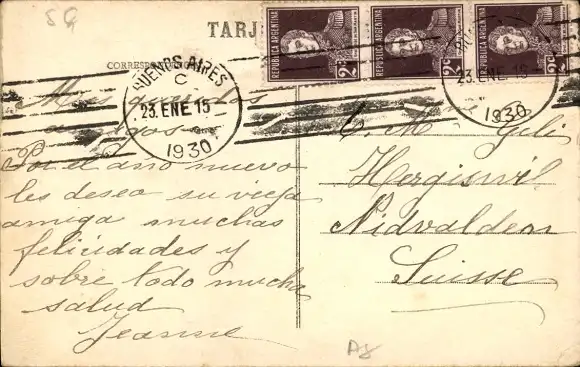 5G
TARJ
CORRESPONDENCIA
REPUBLICA ARGENTINA
2c
REPUBLICA ARGENTINA
2c
REPUBLICA ARGENTINA
2c
BUENOS AIRES
C
23.ENE 15
1930
23.ENE 15
1930
Mis queridos
amigos
Por el año nuevo
les desea su vieja
amiga muchas
felicidades y
sobre todo mucha
salud
Jeanne
Hergiswil
Nidvalden
Suisse